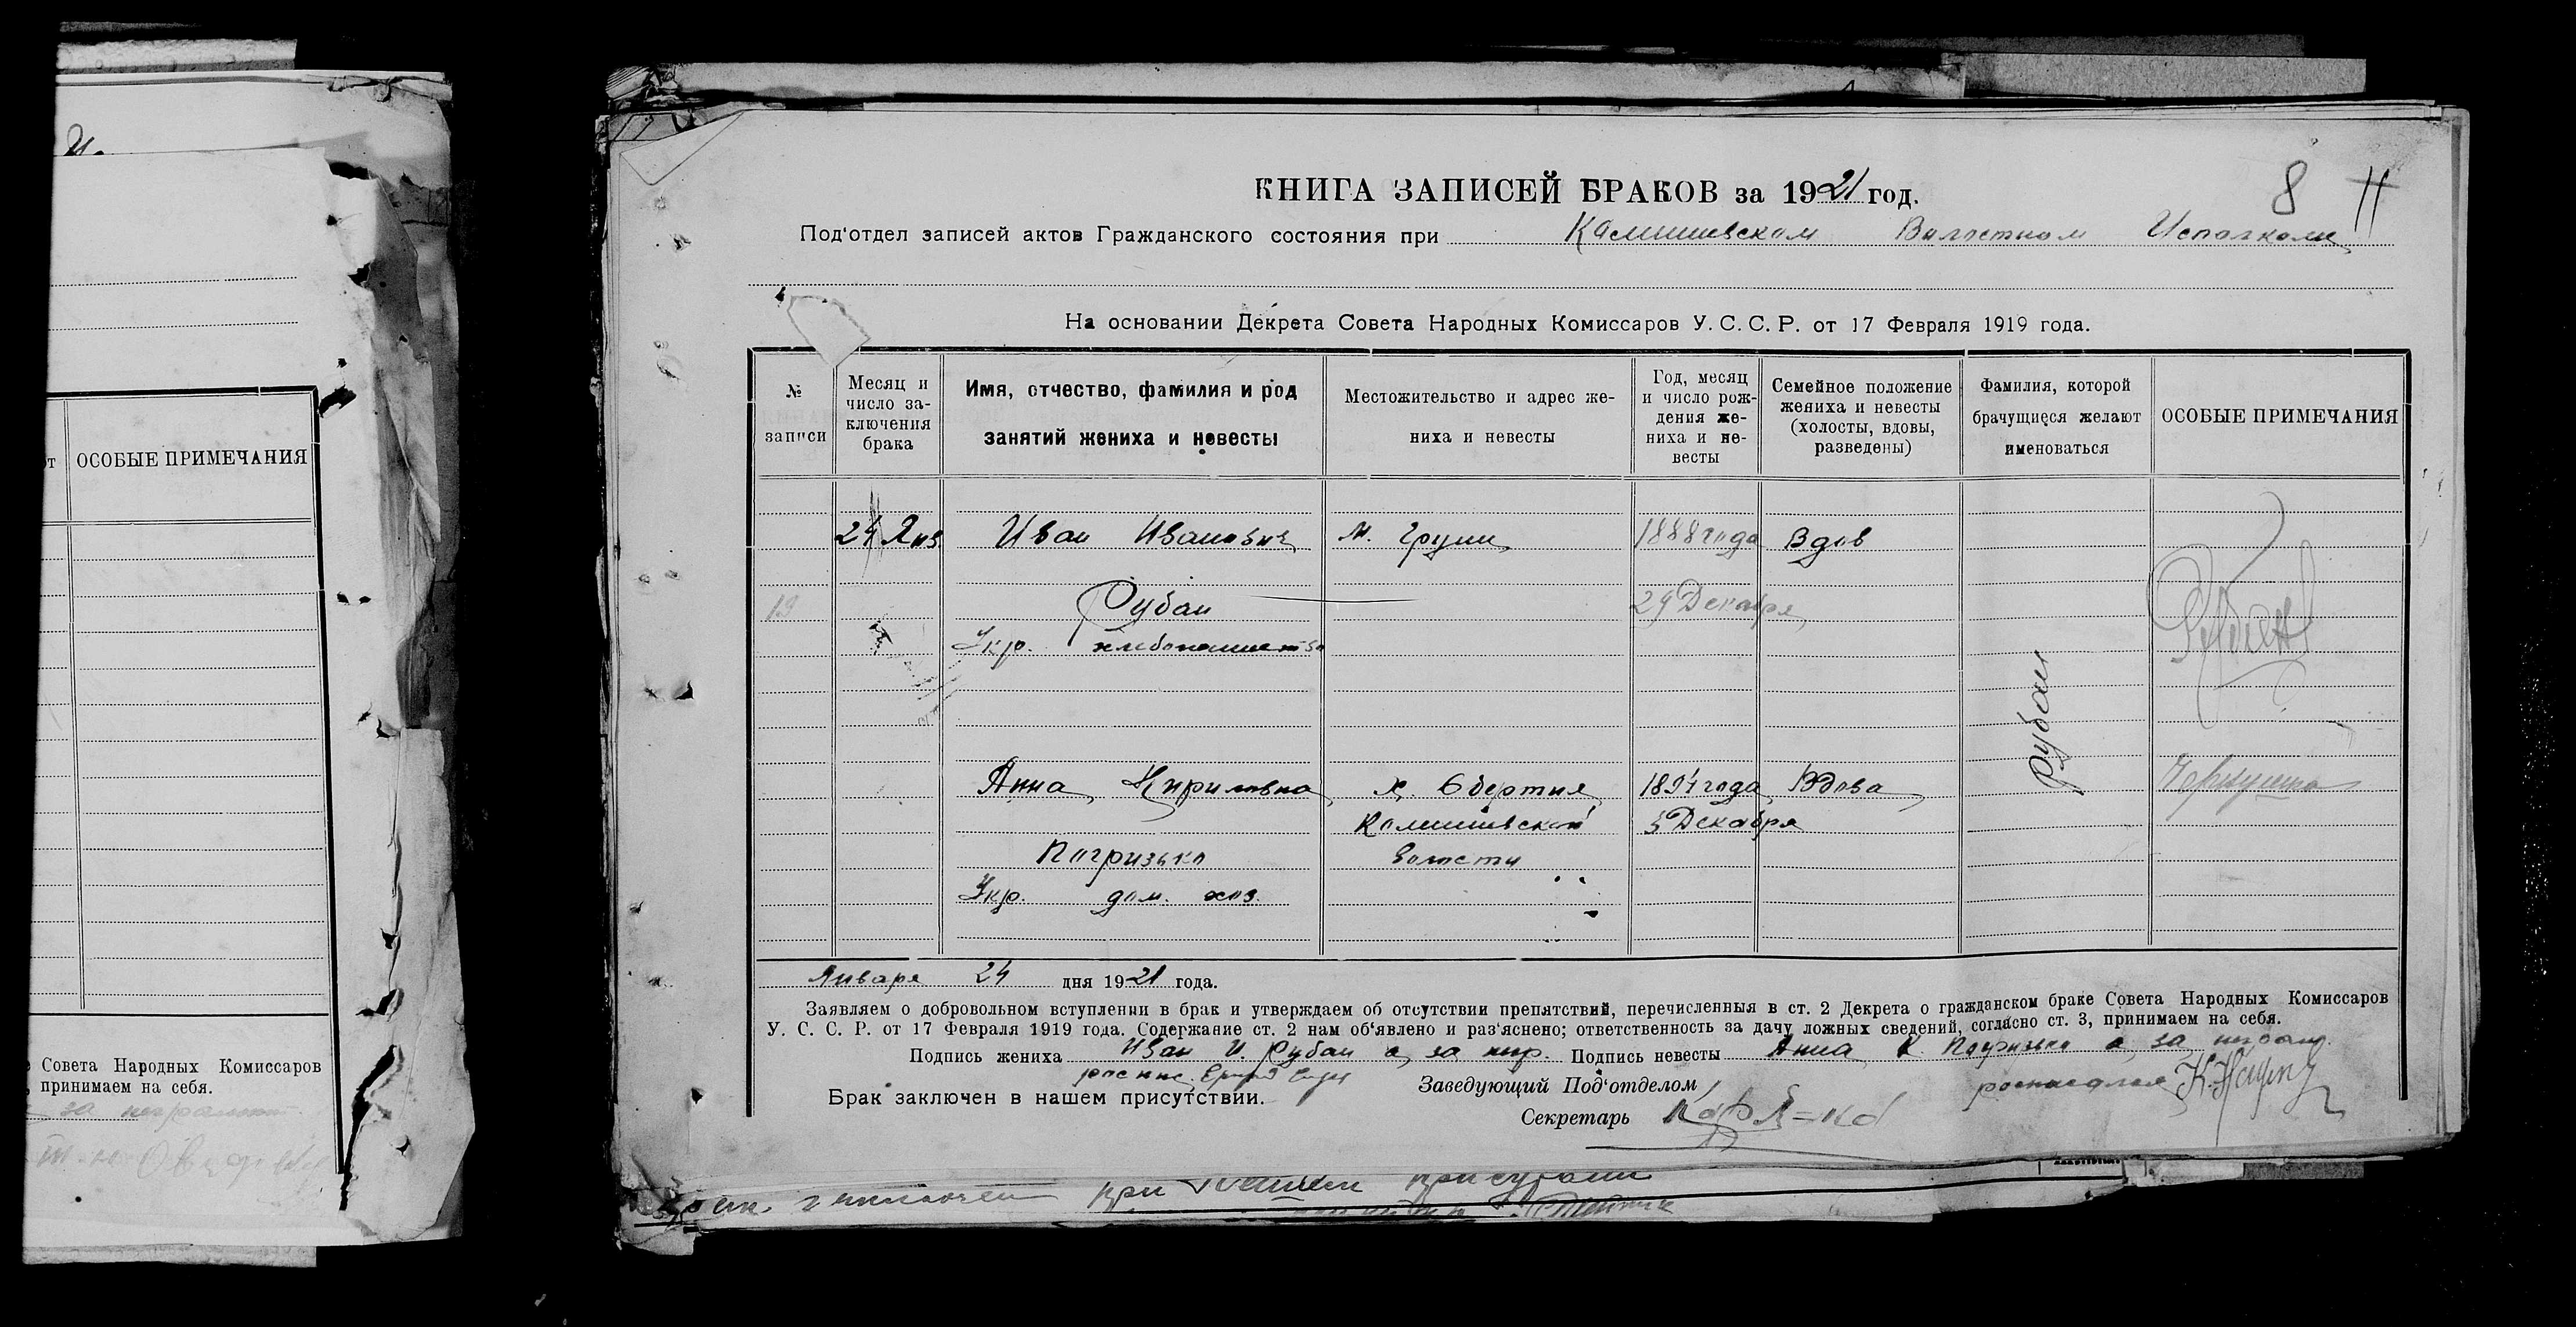 и.
от
ОСОБЫЕ ПРИМЕЧАНИЯ
Совета Народных Комиссаров
принимаем на себя.
за неграмотн.
8 11
КНИГА ЗАПИСЕЙ БРАКОВ за 1921 год.
Под'отдел записей актов Гражданского состояния при Камышевском Волостном Исполкоме
На основании Декрета Совета Народных Комиссаров У. С. С. Р. от 17 Февраля 1919 года.
№ записи
Месяц и число за-
ключения
брака
Имя, отчество, фамилия и род
занятий жениха и невесты
Местожительство и адрес же-
ниха и невесты
Год, месяц
и число рож-
дения же-
ниха и не-
весты
Семейное положение
жениха и невесты
(холосты, вдовы,
разведены)
Фамилия, которой
брачущиеся желают
именоваться
ОСОБЫЕ ПРИМЕЧАНИЯ
24 Янв. Иван Иванович м. Груни 1888 года Вдов
19 Рубан 29 Декабря
Укр. хлебопашество
Рубан
Рубан
Анна Кириловна х. Обертия 1894 года Вдова
Камышевской 5 Декабря
Погризько волости
Укр. дом. хоз.
Января 24 дня 1921 года.
Заявляем о добровольном вступлении в брак и утверждаем об отсутствии препятствий, перечисленныя в ст. 2 Декрета о гражданском браке Совета Народных Комиссаров
У. С. С. Р. от 17 Февраля 1919 года. Содержание ст. 2 нам об'явлено и раз'яснено; ответственность за дачу ложных сведений, согласно ст. 3, принимаем на себя.
Подпись жениха Иван И. Рубан а за нгр. Подпись невесты Анна К. Погризько а за неграм.
роспис. расписался
Брак заключен в нашем присутствии. Заведующий Под'отделом
Секретарь
заключен при